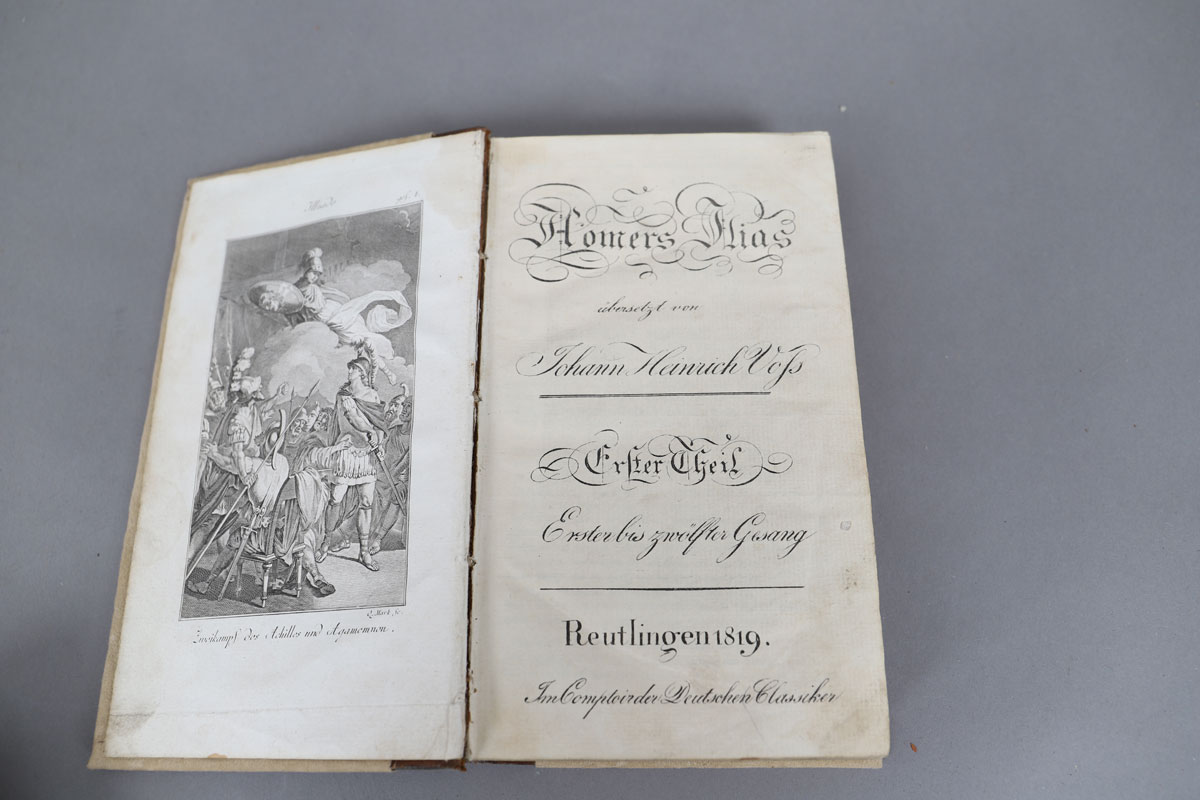 Q. Mark sc.
Zweikampf des Achilles und Agamemnon.
Homers Ilias
übersetzt von
Johann Heinrich Voſs
Erſter Theil
Erster bis zwölfter Gesang
Reutlingen 1819.
Im Comptoir der Deutschen Classiker